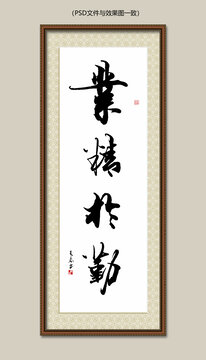 （PSD文件与效果图一致）
業
精
於
勤